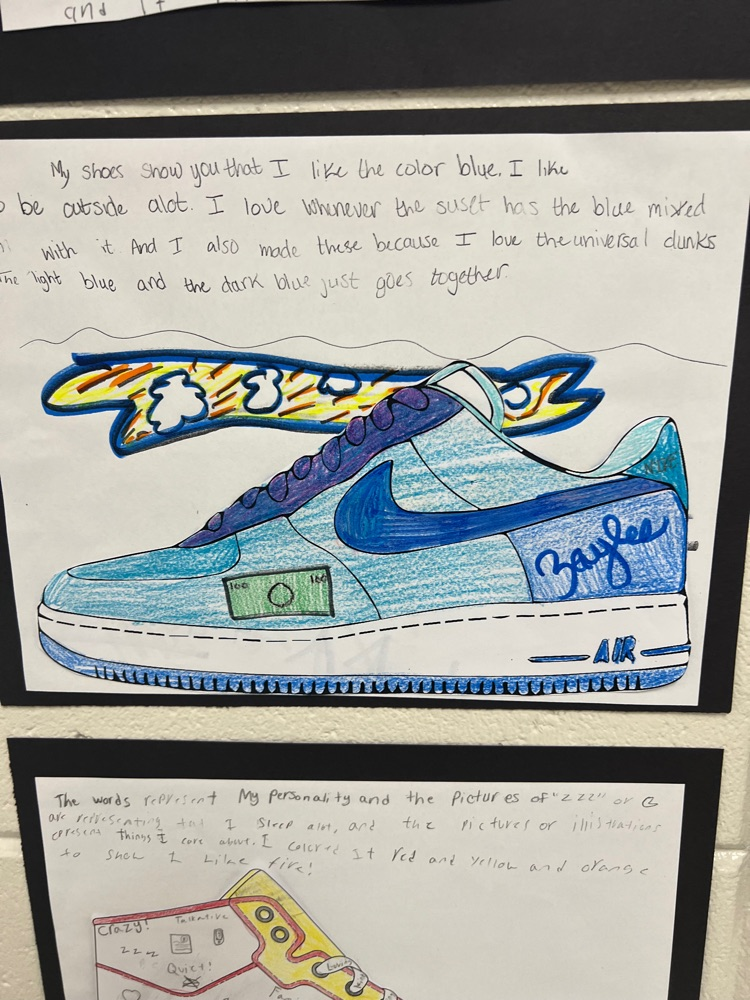 and It
My shoes show you that I like the color blue. I like
o be outside alot. I love whenever the suset has the blue mixed
with it And I also made these because I love the universal dunks
The light blue and the dark blue just goes together.
100 100
Baylee
AIR
The words represent My Personality and the Pictures of "ZZZ" or
are representing that I sleep alot, and the Pictures or illistrations
epresent things I care about. I colored It red and yellow and orange
to show I Like fire!
Crazy! Talkative
zzz
Quiet!